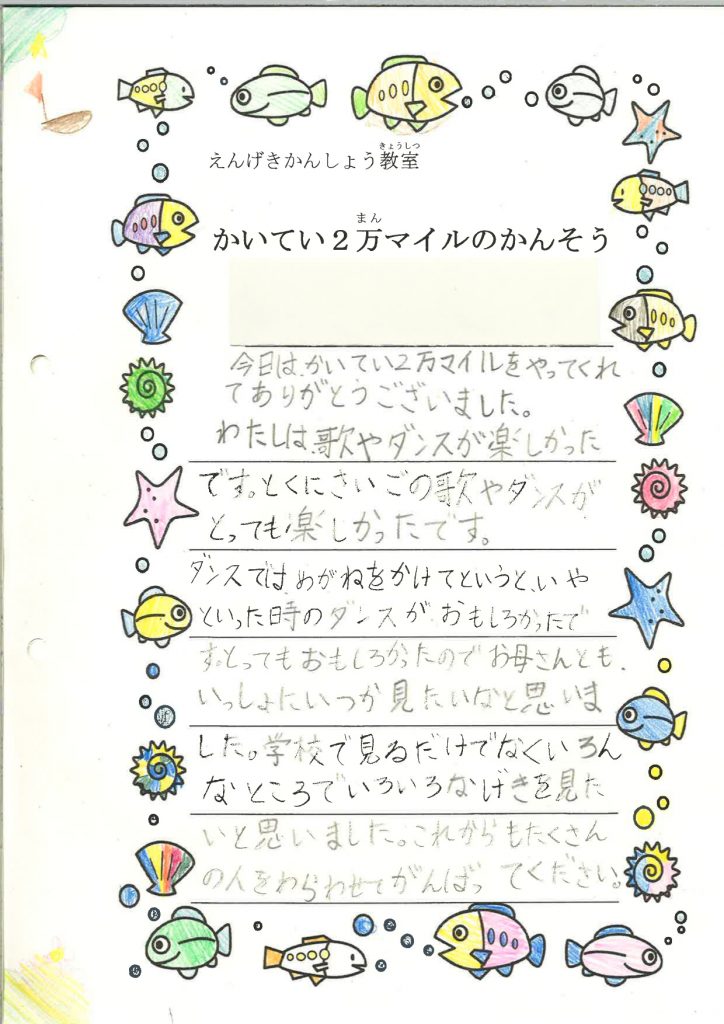 えんげきかんしょう教室
きょうしつ
かいてい2万マイルのかんそう
まん
今日は、かいてい2万マイルをやってくれ
てありがとうございました。
わたしは、歌やダンスが楽しかった
です。とくにさいごの歌やダンスが
とっても楽しかったです。
ダンスではめがねをかけてというと、いや
といった時のダンスがおもしろかったで
す。とってもおもしろかったのでお母さんとも、
いっしょにいつか見たいなと思いま
した。学校で見るだけでなくいろん
なところでいろいろなげきを見た
いと思いました。これからもたくさん
の人をわらわせてがんばってください。